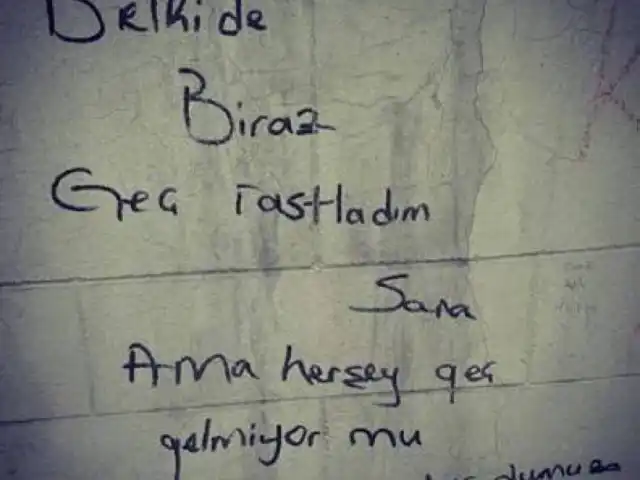 Belkide
Biraz
Geç rastladım
Sana
Ama herşey geç
gelmiyor mu